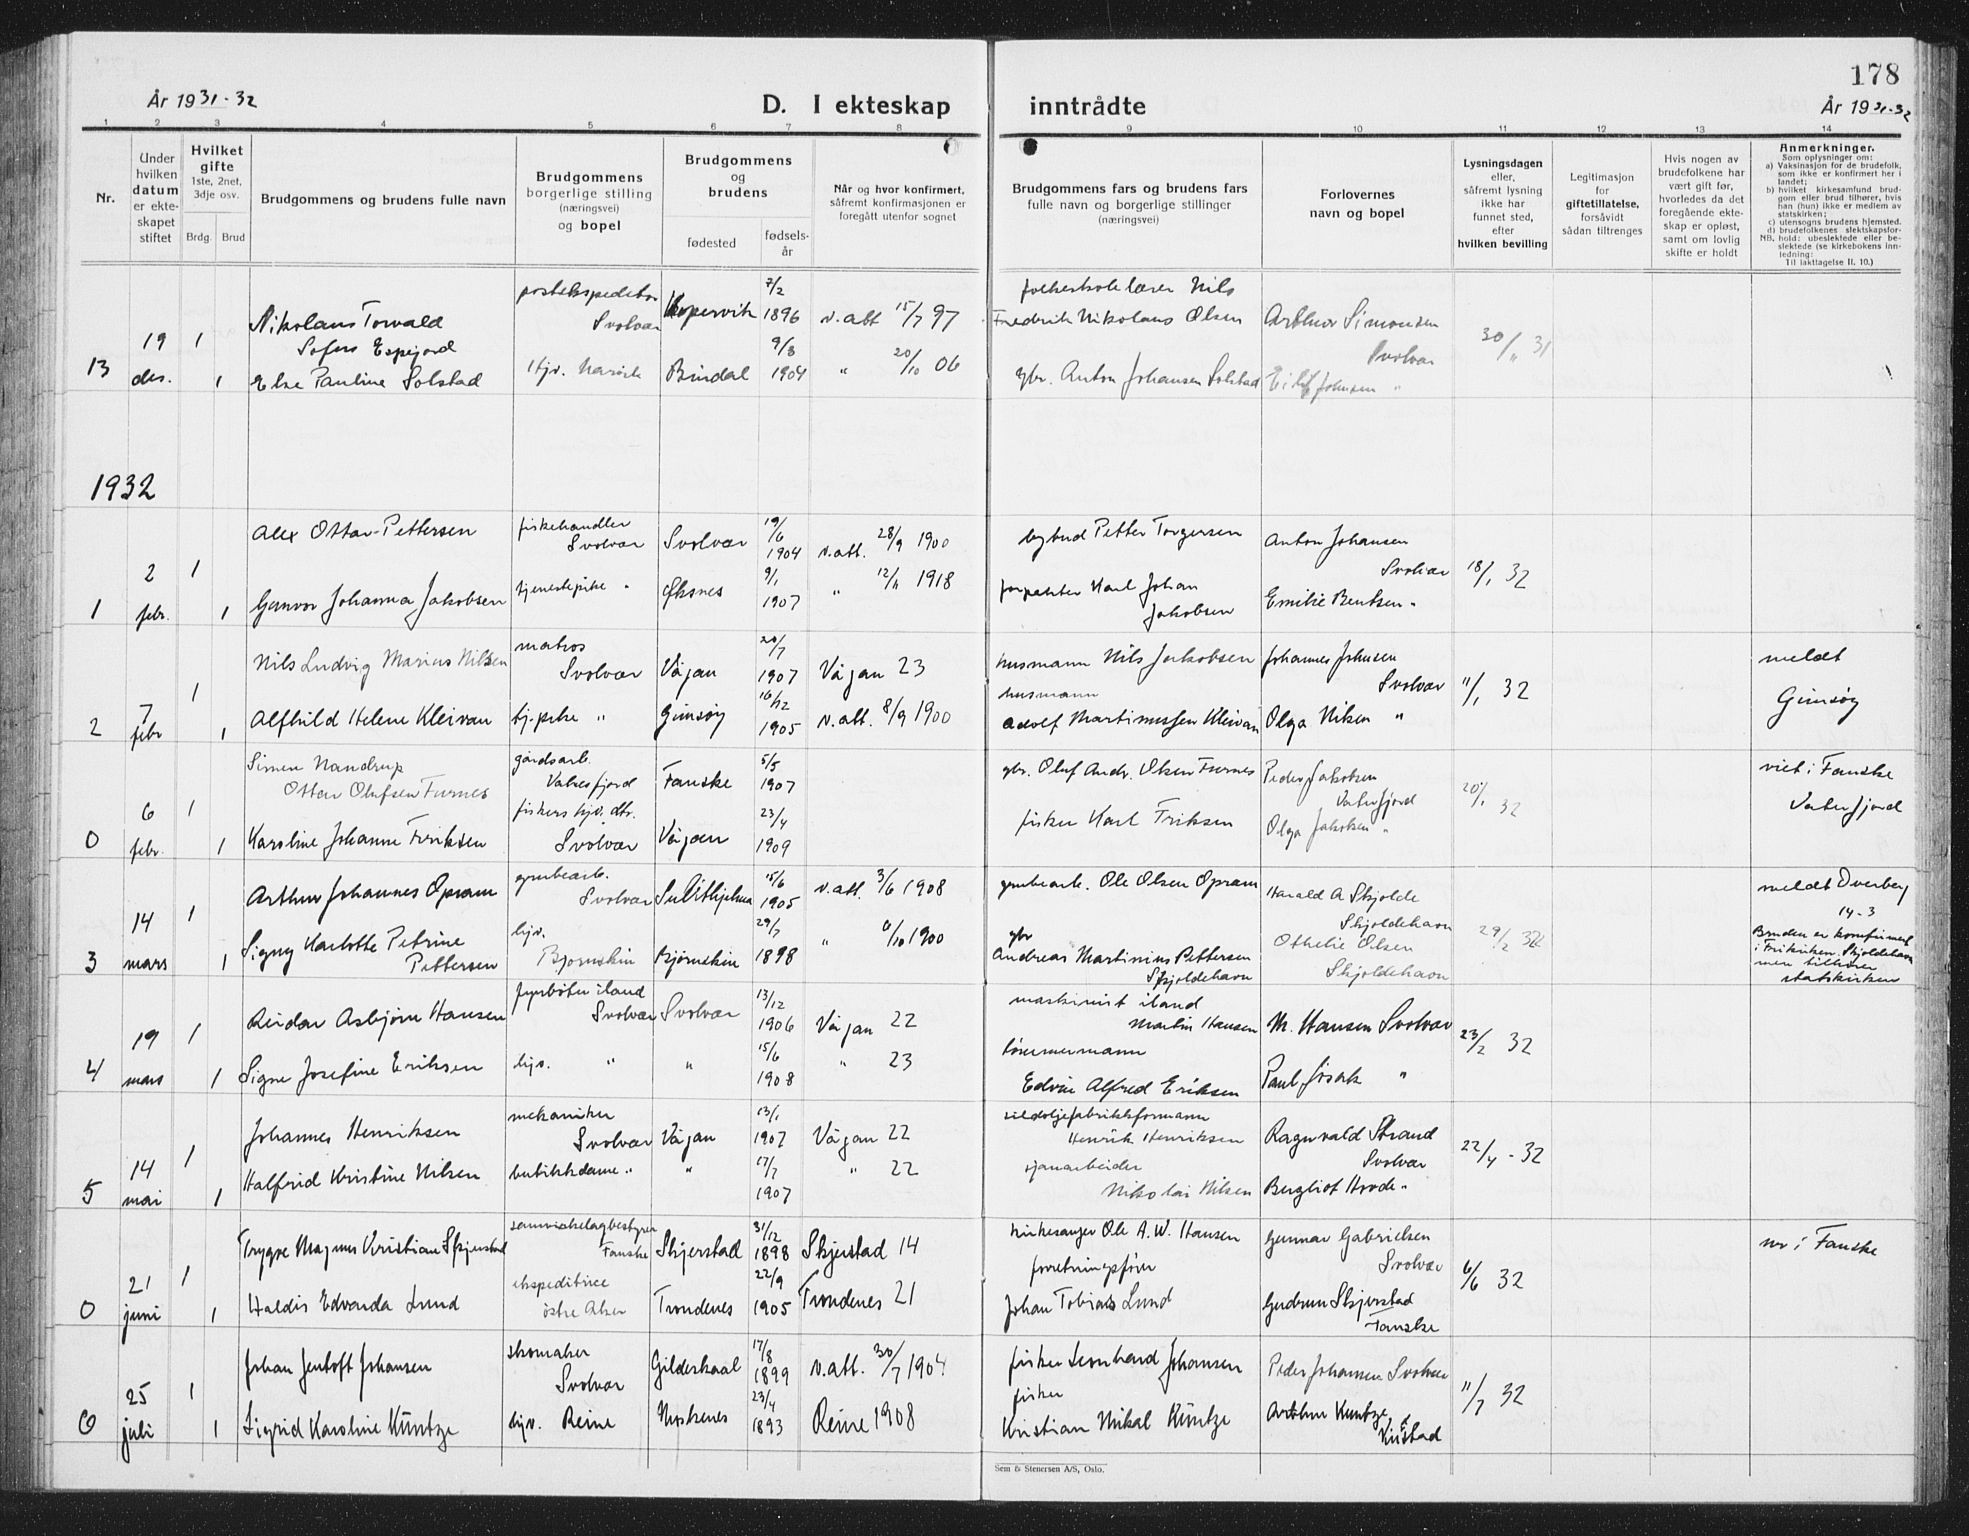 178
År 1931-32
D. I ekteskap inntrådte
År 1931-32
1 2 3 4 5 6 7 8 9 10 11 12 13 14
Nr.
Under hvilken datum er ekteskapet stiftet
Hvilket gifte
1ste, 2net, 3dje osv.
Brdg. Brud
Brudgommens og brudens fulle navn
Brudgommens borgerlige stilling (næringsvei) og bopel
Brudgommens og brudens
fødested
fødselsår
Når og hvor konfirmert, såfremt konfirmasjonen er foregått utenfor sognet
Brudgommens fars og brudens fars fulle navn og borgerlige stillinger (næringsvei)
Forlovernes navn og bopel
Lysningsdagen eller, såfremt lysning ikke har funnet sted, efter hvilken bevilling
Legitimasjon for giftetillatelse, forsåvidt sådan tiltrenges
Hvis nogen av brudefolkene har vært gift før, hvorledes da det foregående ekteskap er opløst, samt om lovlig skifte er holdt
Anmerkninger.
Som oplysninger om:
a) Vaksinasjon for de brudefolk, som ikke er konfirmert her i landet;
b) hvilket kirkesamfund brudgom eller brud tilhører, hvis han (hun) ikke er medlem av statskirken;
c) utensogns brudens hjemsted.
d) brudefolkenes slektskapsforhold: ubeslektede eller beslektede (se kirkebokens innledning:
NB. Til iakttagelse II. 10.)
13 19 des. 1 Nikolaus Torvald postekspeditør Svolvær Kopervik 7/2 1896 v. att 15/7 97 folkeskolelærer Nils Fredrik Nikolaus Olsen Arthur Simonsen Svolvær 30/11 31
1 Else Pauline Solstad Hjv. Narvik Bindal 9/8 1904 " 20/10 06 gbr. Anton Johansen Solstad
1932
1 2 febr. 1 Alex Ottar Pettersen fiskehandler Svolvær Svolvær 19/6 1904 v. att. 28/9 1900 bybud Petter Torgersen Anton Johansen Svolvær 18/1 32
1 Gunvor Johanna Jakobsen tjenestepike " Øksnes 9/1 1907 " 12/11 1918 forpakter Karl Johan Jakobsen Emilie Bentsen "
2 7 febr 1 Nils Ludvig Marius Nilsen matros Svolvær Vågan 20/7 1907 Vågan 23 husmann Nils Jakobsen Johannes Johnsen Svolvær 11/1 32 meldt Gimsøy
1 Alfhild Helene Kleivan tj.pike " Gimsøy 16/12 1905 v. att. 8/9 1900 husmann Adolf Martinussen Kleivan Olga Nilsen "
0 6 febr. 1 Simen Nandrup Ottar Olufsen Furnes gårdsarb. Valnesfjord Fauske 5/5 1907 gbr. Oluf Andr. Olsen Furnes Peder Jakobsen 20/1 32 viet i Fauske
1 Karoline Johanne Friksen fiskers hjv. dtr. Svolvær Vågan 23/4 1909 fisker Karl Friksen Olga Jakobsen "
3 14 mars 1 Arthur Johannes Opram grubearb. Svolvær Sulithjelma 15/6 1905 v. att. 3/6 1908 grubearb. Ole Olsen Opram Harald A Skjolde Skjoldehavn 29/2 32 meldt Dverberg 14-3
1 Signy Karlotte Petrine Pettersen hjv. Bjørnskin Bjørnskin 29/7 1898 " 6/10 1900 gbr Andreas Martinius Pettersen Skjoldehavn Othelie Olsen Skjoldehavn
Bruden er konfirmert i Frikirken, Skjoldehavn men tilhører statskirken
4 19 mars 1 Reidar Asbjørn Hansen fyrbøter iland Svolvær Svolvær 13/12 1906 Vågan 22 maskinist iland Martin Hansen M. Hansen Svolvær 23/2 32
1 Signe Josefine Eriksen hjv. " " 15/6 1908 " 23 tømmermann Edvin Alfred Eriksen Paul Jisak "
5 14 mai 1 Johannes Henriksen mekaniker Svolvær Vågan 13/1 1907 Vågan 22 sildoljefabrikkformann Henrik Henriksen Ragnvald Strand Svolvær 22/4 - 32
1 Halfrid Kristine Nilsen butikkdame " " 17/7 1907 " 22 sjauarbeider Nikolai Nilsen Bergliot Hovde "
0 21 juni 1 Trygve Magnus Kristian Skjerstad samvirkelagbestyrer Fauske Skjerstad 31/12 1898 Skjerstad 14 kirkesanger Ole A. W. Hansen Gunnar Gabrielsen Svolvær 6/6 32 nr i Fauske
1 Haldis Edvarda Lund ekspeditrice østre Aker Trondenes 22/9 1905 Trondenes 21 forretningsfører Johan Tobias Lund Gudrun Skjerstad Fauske
0 25 juli 1 Johan Jentoft Johansen skomaker Svolvær Gildeskaal 17/8 1899 v. att. 30/7 1904 fisker Leonhard Johansen Peder Johansen Svolvær 11/7 32
1 Sigrid Karoline Küntze hjv. Reine Moskenes 23/4 1893 Reine 1908 fisker Kristian Mikal Küntze Arthur Kuntze
Sem & Stenersen A/S, Oslo.